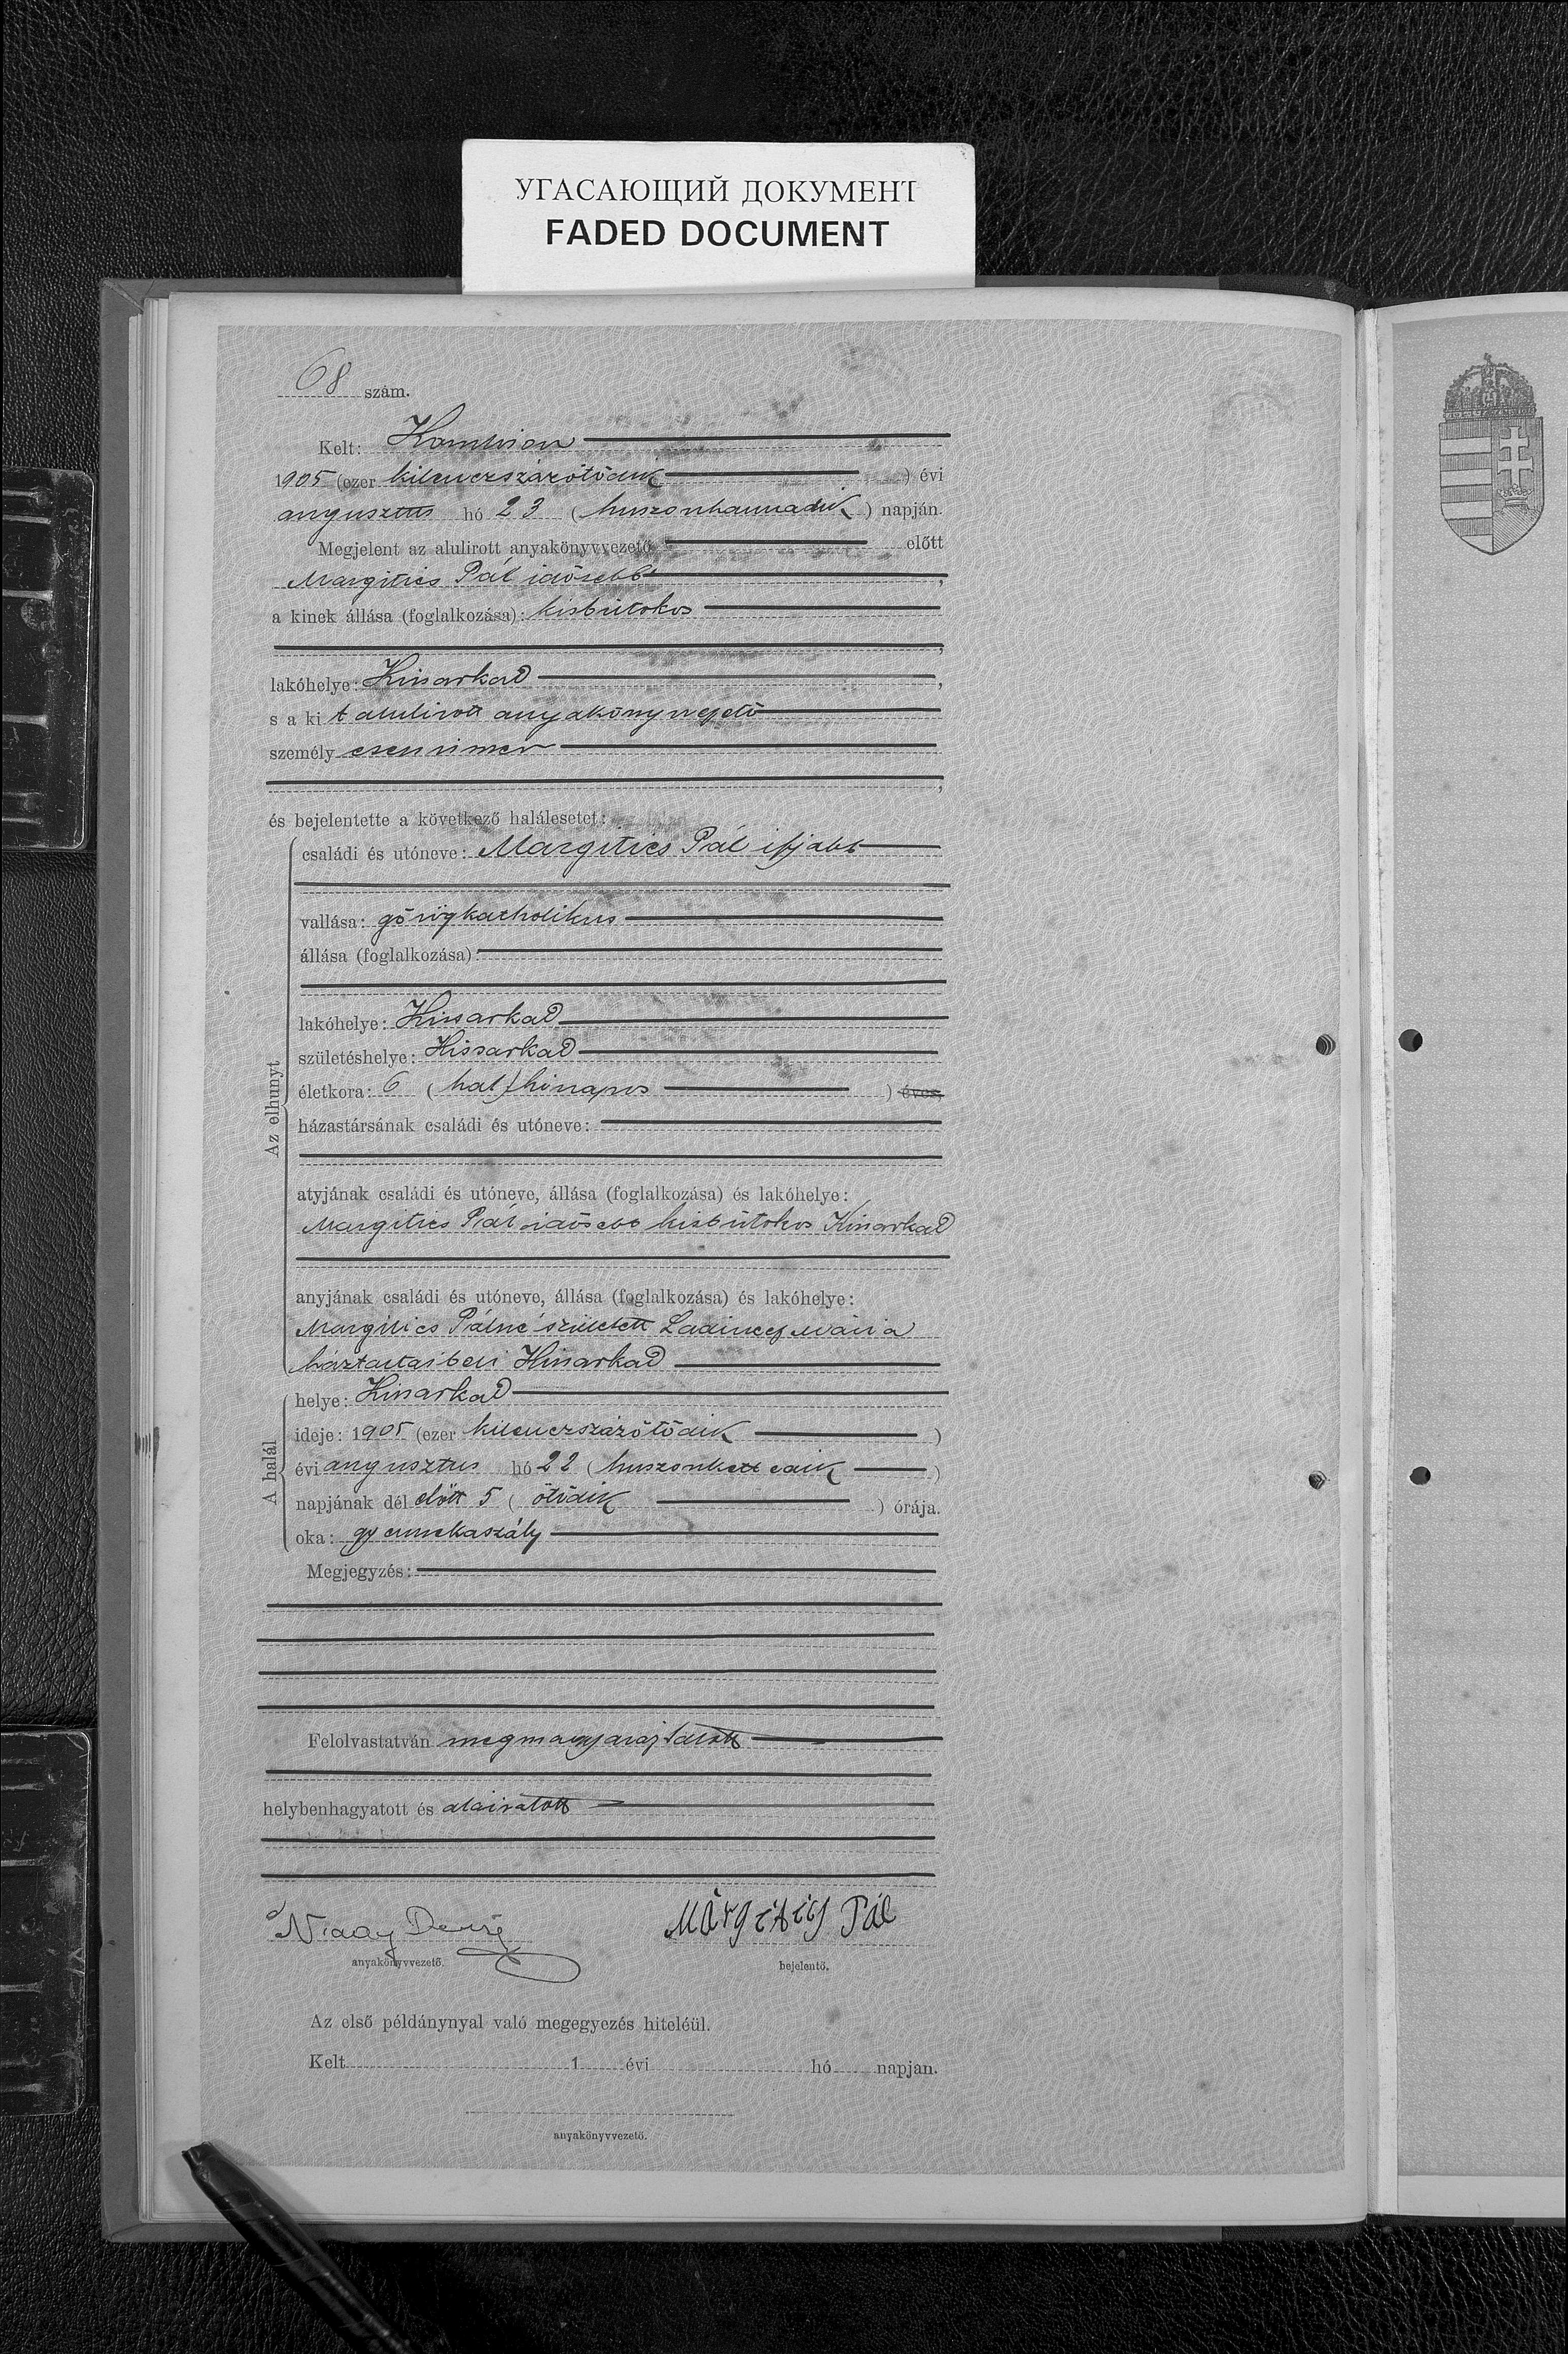 УГАСАЮЩИЙ ДОКУМЕНТ
FADED DOCUMENT
68 szám.
Kelt:
1905 (ezer kilenczszázötödik ) évi
augusztus hó 23 ( huszonharmadik ) napján.
Megjelent az alulirott anyakönyvvezető előtt
Margitics Pál idősebb ,
a kinek állása (foglalkozása): kisbirtokos
,
lakóhelye: Kissarkad ,
s a ki t alulirott anyakönyvvezető
személy
,
és bejelentette a következő halálesetet:
Az elhunyt
családi és utóneve: Margitics Pál ifjabb
vallása: görögkatholikus
állása (foglalkozása):
lakóhelye: Kissarkad
születéshelye: Kissarkad
életkora: 6 ( hat) hónapos ) éves,
házastársának családi és utóneve:
atyjának családi és utóneve, állása (foglalkozása) és lakóhelye:
Margitics Pál idősebb kisbirtokos Kissarkad
anyjának családi és utóneve, állása (foglalkozása) és lakóhelye:
Margitics Pálné született Mária
háztartásbeli Kissarkad
A halál
helye: Kissarkad
ideje: 1905 (ezer kilenczszázötödik )
évi augusztus hó 22 ( huszonkettedik )
napjának dél előtt 5 ( ötödik ) órája.
oka: gyermekaszály
Megjegyzés:
Felolvastatván megmagyaráztatott
helybenhagyatott és aláiratott
anyakönyvvezető.
Márgitics Pál
bejelentő.
Az első példánynyal való megegyezés hiteléül.
Kelt 1 évi hó napján.
anyakönyvvezető.